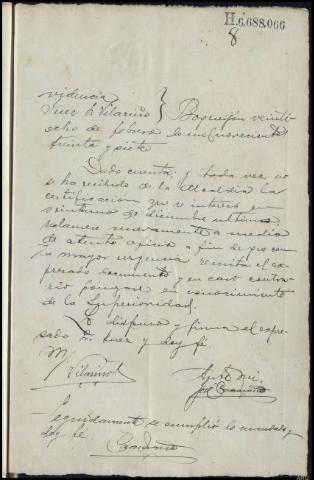 H.6.688.066
8
videncia
Juez Sr Vilariño } Boqueijón veinti-
ocho de febrero de mil novecientos
treinta y siete
Dada cuenta; y toda vez no
se ha recibido de la Alcaldía la
certificación que se interesó en
veintiuno de diciembre último,
reclámese nuevamente a medio
de atento oficio a fin de que con
la mayor urgencia remita el ex-
presado documento y en caso contra-
rio póngase en conocimiento
de la Superioridad.
Lo dispuso y firma el expre-
sado Sr. Juez y doy fé.
M Vilariño
Ante mi.
Seguidamente se cumplió lo mandado,
doy fé.